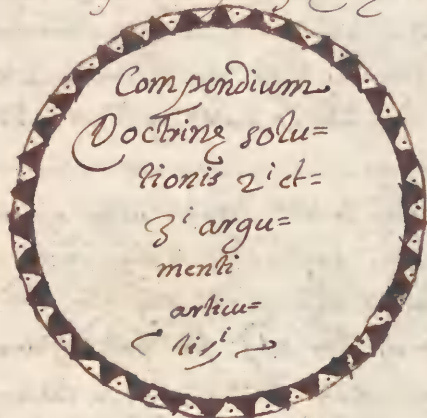 Compendium
Doctrinę solu=
tionis 2ⁱ et=
3ⁱ argu=
menti
articu=